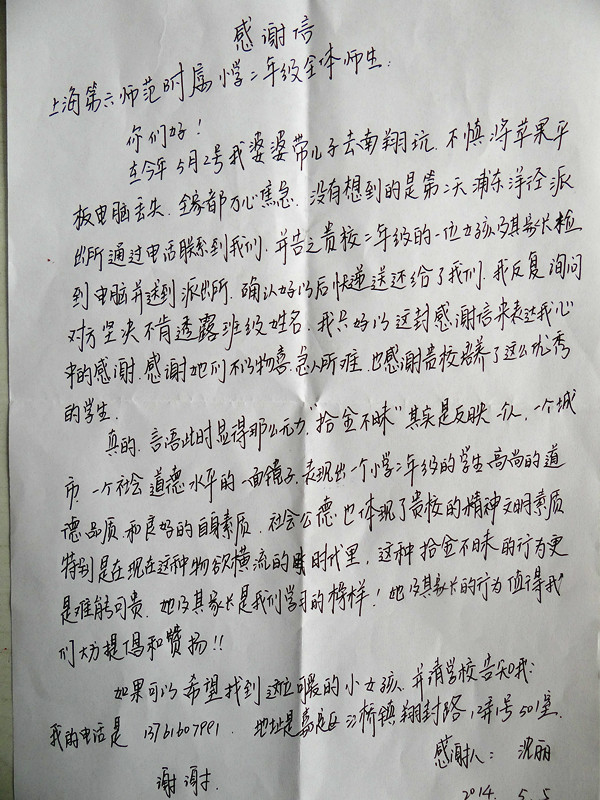 感谢信
上海第六师范附属小学二年级全体师生:
你们好!
在今年5月2号我婆婆带儿子去南翔玩.不慎将苹果平
板电脑丢失.全家都万心焦急.没有想到的是第二天浦东洋泾派
出所通过电话联系到我们.并告之贵校二年级的一位女孩及其家长捡
到电脑并送到派出所.确认好以后快递送还给了我们.我反复询问
对方坚决不肯透露班级姓名.我只好以这封感谢信来表达我心
中的感谢.感谢她们不以物喜.急人所难.也感谢贵校培养了这么优秀
的学生.
真的.言语此时显得那么无力."拾金不昧"其实是反映一个人.一个城
市.一个社会道德水平的一面镜子.表现出一个小学二年级的学生高尚的道
德品质.和良好的自身素质.社会公德.也体现了贵校的精神文明素质
特别是在现在这种物欲横流的时代里,这种拾金不昧的行为更
是难能可贵.她及其家长是我们学习的榜样!她及其家长的行为值得我
们大力提倡和赞扬!!
如果可以希望找到这位可爱的小女孩.并请学校告知我:
我的电话是 13761607991.地址是嘉定区江桥镇翔封路,12弄1号501室.
感谢人: 沈丽
谢谢.
2014. 5. 5